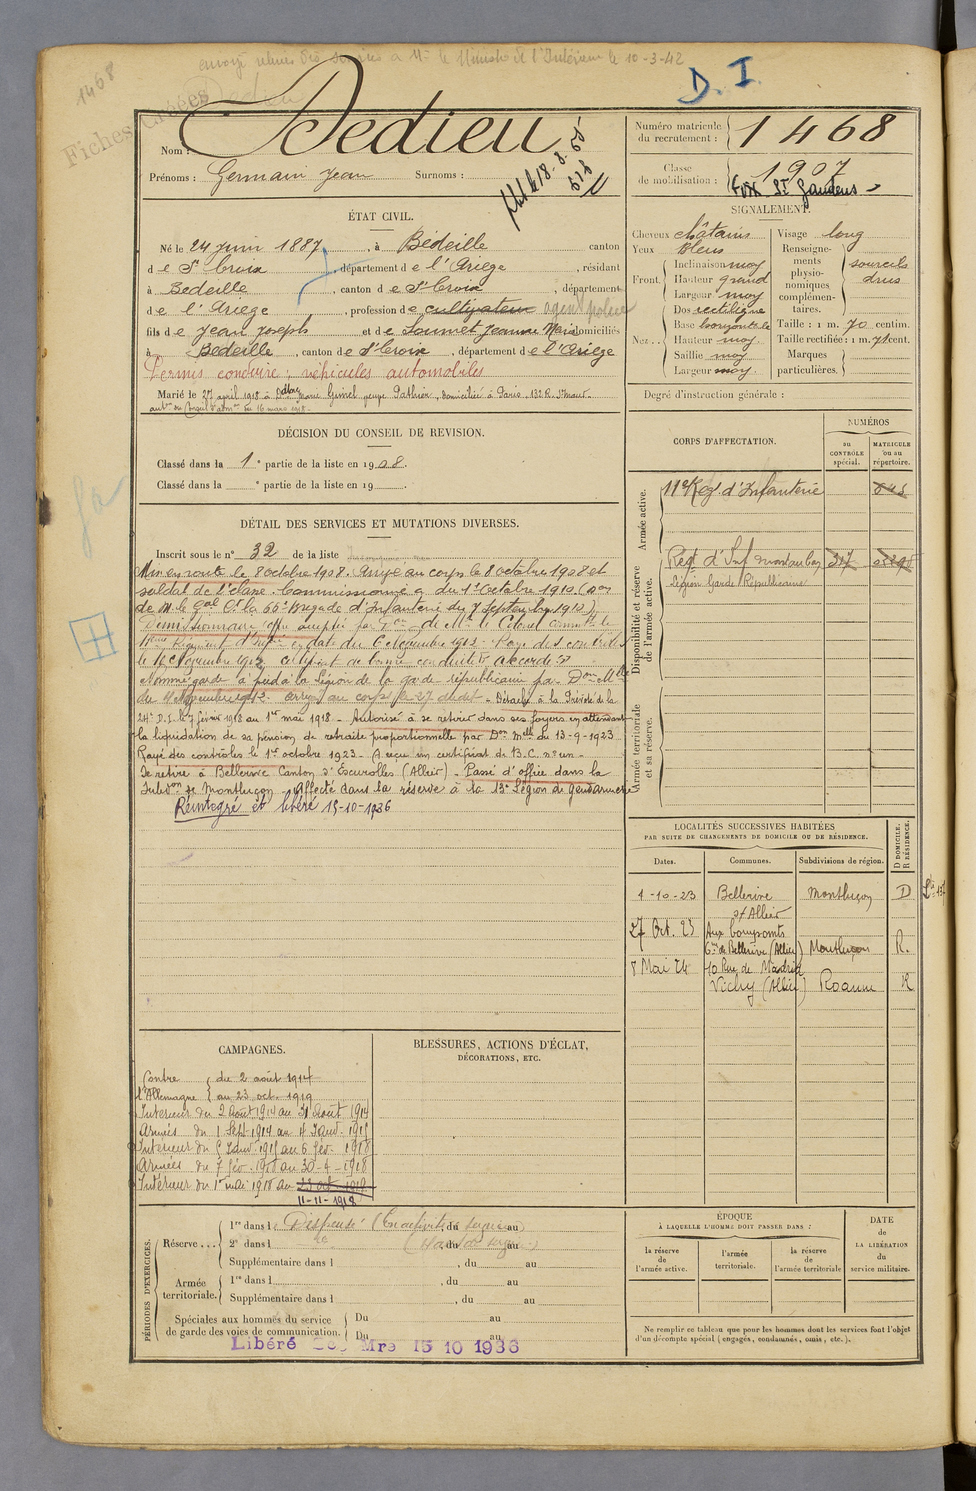 envoyé relevé des services à Mr le Ministre de l'Intérieur le 10-3-42
1468
D. I.
Fiches Créées
Dedieu
Nom : Dedieu
Prénoms : Germain Jean Surnoms :
Numéro matricule du recrutement : 1468
Classe de mobilisation : 1907
St Gaudens
ÉTAT CIVIL.
Né le 24 juin 1887, à Bédeille canton
de St Croix, département de l'Ariège, résidant
à Bédeille, canton de St Croix, département
de l'Ariège, profession de cultivateur agent police
fils de Jean Joseph et de Soumet Jeanne Marie domiciliés
à Bédeille, canton de St Croix, département de l'Ariège
Permis conduire : véhicules automobiles
Marié le 27 april 1918 à Marie Gimel Pathier, domiciliée à Paris, 132 R. St Maur.
16 mars 1918.
SIGNALEMENT.
Cheveux châtains
Yeux bleus
Front Inclinaison moy
Hauteur grand
Largeur moy
Nez Dos rectiligne
Base horizontale
Hauteur moy.
Saillie moy
Largeur moy.
Visage long
Renseignements physionomiques complémentaires. sourcils drus
Taille : 1 m. 70 centim.
Taille rectifiée : 1 m. 71 cent.
Marques particulières.
Degré d'instruction générale :
DÉCISION DU CONSEIL DE REVISION.
Classé dans la 1e partie de la liste en 1908.
Classé dans la e partie de la liste en 19
DÉTAIL DES SERVICES ET MUTATIONS DIVERSES.
Inscrit sous le n° 32 de la liste
Mis en route le 8 octobre 1908. Arrivé au corps le 8 octobre 1908 et
soldat de 2e classe. Commissionné à du 1er octobre 1910. (Don
de M. le Gal Ct la 66e Brigade d'Infanterie du 7 Septembre 1910).
Démissionnaire offre acceptée par Don de Mr le Colonel Commt le
11ème Régiment d'Infie en date du 6 Novembre 1912 - Rayé des contrôles
le 1912 certificat de bonne conduite accordé
Nommé garde à pied à la Légion de la garde républicaine par Don Mlle
du Novembre 1912. Arrivé au corps le 27 dudit - Détaché à la Prévôté de la
24e D.I. le 7 février 1918 au 1er mai 1918 - Autorisé à se retirer dans ses foyers en attendant
la liquidation de sa pension de retraite proportionnelle par Don Melle du 13-9-1923
Rayé des contrôles le 1er octobre 1923 - A reçu un certificat de B.C. n° un -
Se retire à Bellerive Canton d'Escurolles (Allier) - Passé d'office dans la
Subdon de Montluçon. Affecté dans la réserve à la 13e Légion de Gendarmerie
Réintégré et libéré 15-10-1936
CORPS D'AFFECTATION.
NUMÉROS
au CONTRÔLE spécial.
MATRICULE ou au répertoire.
Armée active.
11e Reg. d'Infanterie
Disponibilité et réserve de l'armée active.
Reg. d'Inf Montauban
Légion Garde Républicaine
Armée territoriale et sa réserve.
LOCALITÉS SUCCESSIVES HABITÉES
PAR SUITE DE CHANGEMENTS DE DOMICILE OU DE RÉSIDENCE.
D DOMICILE. R RÉSIDENCE.
Dates. Communes. Subdivisions de région.
1-10-23 Bellerive s/ Allier Montluçon D
27 Oct. 23 Aux
Cne de Bellerive (Allier) Montluçon R.
8 Mai 24 10 Rue de Madrid
Vichy (Allier) Roanne R
CAMPAGNES.
Contre l'Allemagne du 2 août 1914
au 23 oct. 1919
Intérieur du 2 Août 1914 au 31 Août 1914
Armées du 1 Sept 1914 au 4 Janv. 1915
Intérieur du 5 Janv. 1915 au 6 fév. 1918
Armées du 7 fév. 1918 au 30-4-1918
Intérieur du 1er mai 1918 au 23 oct. 1919
11-11-1918
BLESSURES, ACTIONS D'ÉCLAT,
DÉCORATIONS, ETC.
PÉRIODES D'EXERCICES.
Réserve...
1re dans l Dispensé (En activité de service) du au
2e dans l , du au
Supplémentaire dans l , du au
Armée territoriale.
1re dans l , du au
Supplémentaire dans l , du au
Spéciales aux hommes du service de garde des voies de communication.
Du au
Du au
Libéré Mre 15 10 1936
ÉPOQUE
À LAQUELLE L'HOMME DOIT PASSER DANS :
la réserve de l'armée active.
l'armée territoriale.
la réserve de l'armée territoriale
DATE DE LA LIBÉRATION du service militaire.
Ne remplir ce tableau que pour les hommes dont les services font l'objet
d'un décompte spécial (engagés, condamnés, omis, etc.).